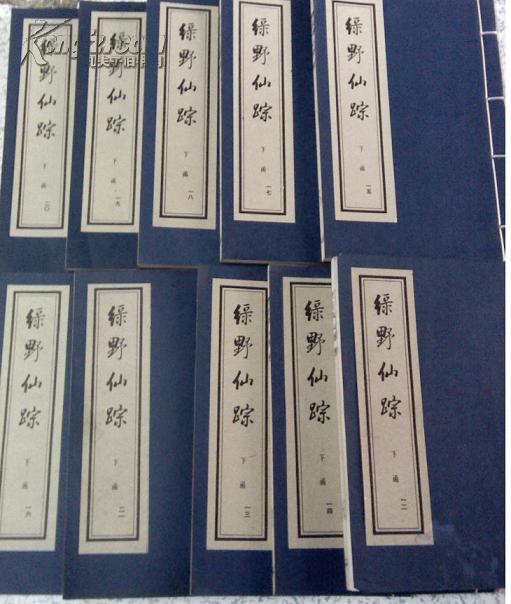 绿野仙踪
下函
二〇
绿野仙踪
下函
一九
绿野仙踪
下函
一八
绿野仙踪
下函
一七
绿野仙踪
下函
一五
绿野仙踪
下函
一六
绿野仙踪
下函
一一
绿野仙踪
下函
一三
绿野仙踪
下函
一四
绿野仙踪
下函
一二